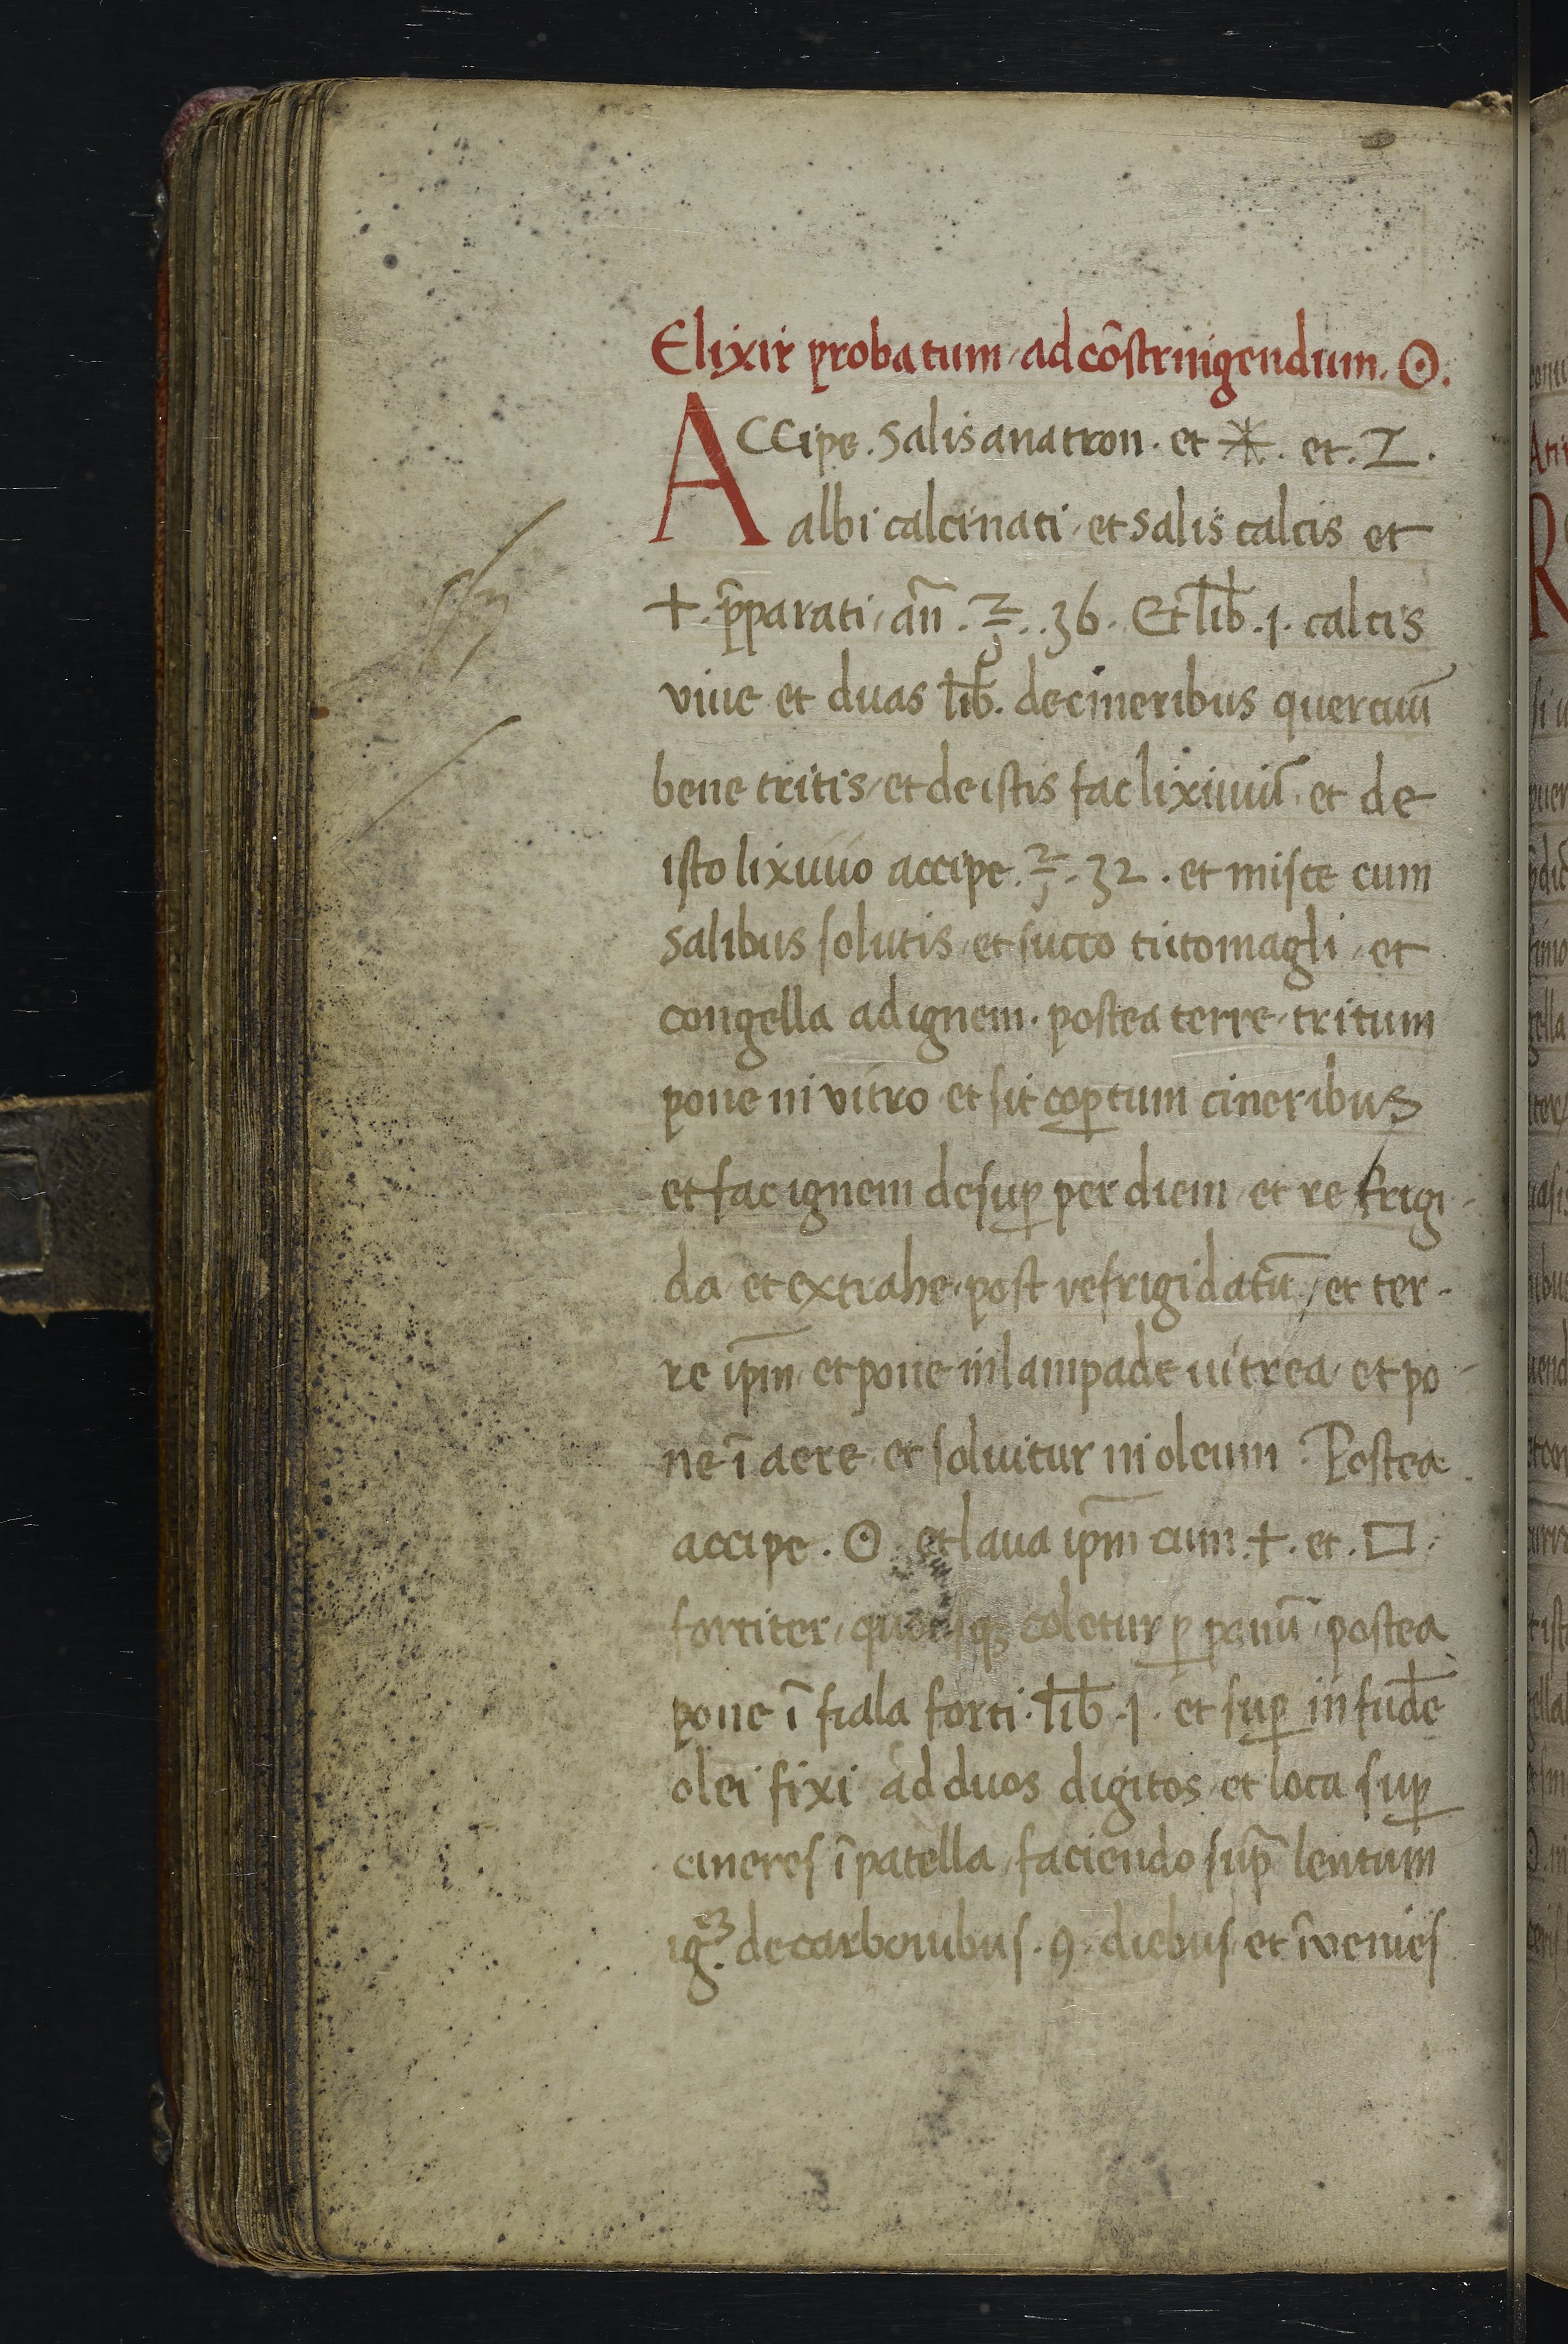 Elixir probatum ad cōstringendum. ☉.
ACcipe. salis anatron. et ✳. et. I.
albi calcinati, et salis calcis et
+. p̄parati, an̄. ℥. .36. Et lib̄ .1. calcis
viue et duas lib̄. de cineribus quercuū
bene tritis, et de istis fac lixiuiū, et de
isto lixiuio accipe. ℥. 32. et misce cum
salibus solutis, et succo titomagli, et
congella ad ignem. postea terre, tritum
pone in vitro et sit coꝑtum cineribus
et fac ignem desuꝑ per diem, et refrigi-
da, et extrahe, post refrigidatū, et ter-
re ip̄m, et pone in lampade uitrea, et po-
ne ī aere, et soluitur in oleum. Postea
accipe. ☉. et laua ip̄m cum. +. et. □.
fortiter, coletur ꝑ panū, postea
pone ī fiala forti. lib̄ .1. et suꝑ infūde
olei fixi ad duos digitos et loca suꝑ
cineres ī patella, faciendo sup̄ lentum
ig.ē de carbonibus. 9. diebus, et īvenies